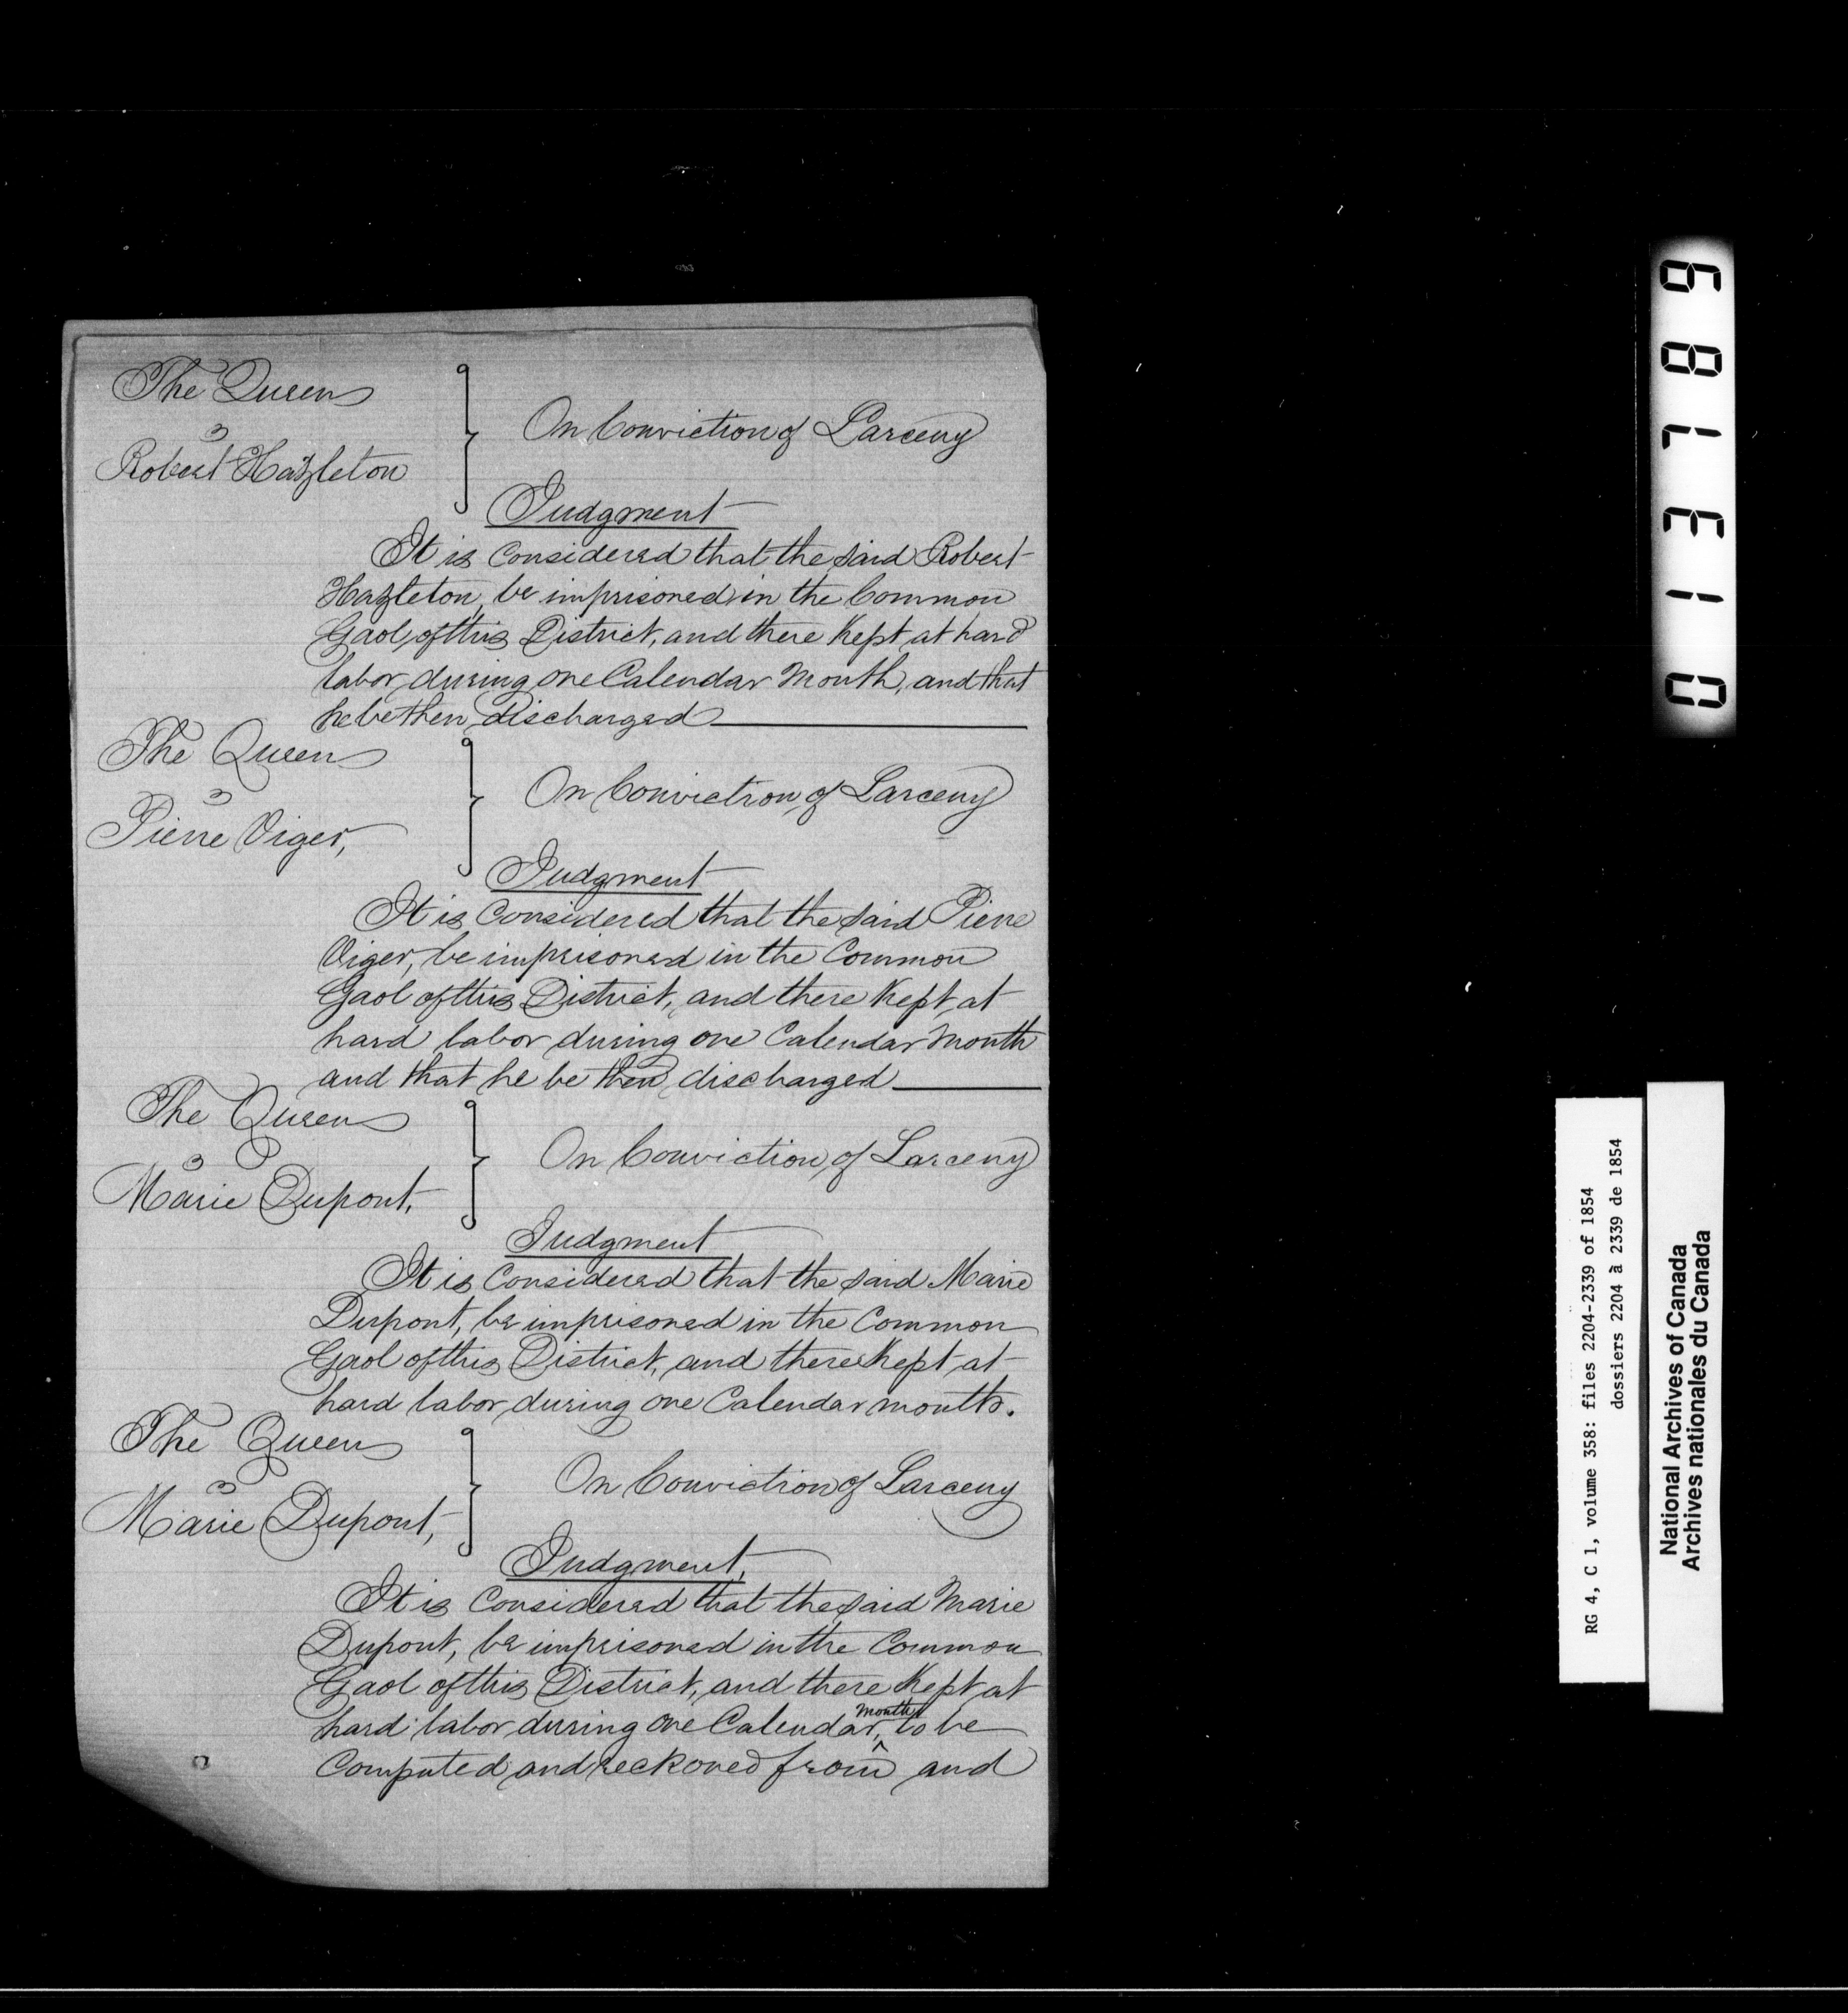 The Queen
Robert Hazleton
On Conviction of Larceny
Judgment
It is Considered that the said Robert
Hazleton, be imprisoned in the Common
Gaol of this District, and there Kept at hard
labor during one Calendar Month, and that
he be then discharged
The Queen
Pierre Viger,
On Conviction of Larceny
Judgment
It is Considered that the said Pierre
Viger, be imprisoned in the Common
Gaol of this District, and there Kept at
hard labor during one Calendar Month
and that he be then discharged
The Queen
Marie Dupont,
On Conviction of Larceny
Judgment
It is Considered that the said Marie
Dupont, be imprisoned in the Common
Gaol of this District, and there Kept at
hard labor during one Calendar month.
The Queen
Marie Dupont,
On Conviction of Larceny
Judgment,
It is Considered that the said Marie
Dupont, be imprisoned in the Common
Gaol of this District, and there Kept at
hard labor during one Calendar, month to be
Computed and reckoned from and
013789
RG 4, C 1, volume 358: files 2204-2339 of 1854
dossiers 2204 à 2339 de 1854
National Archives of Canada
Archives nationales du Canada